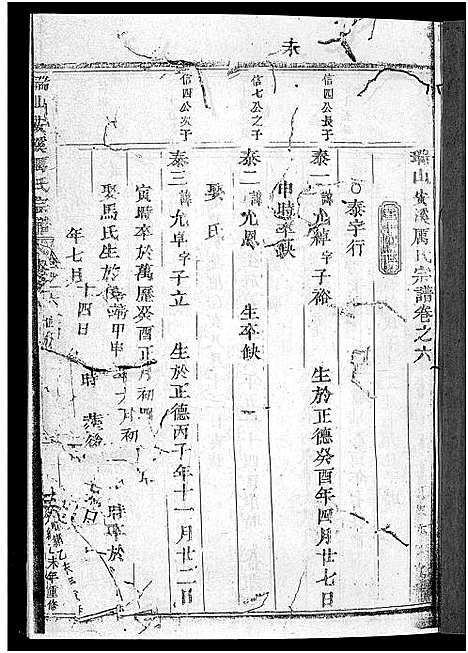 瑞山安溪厲氏宗譜卷之六
○泰字行
信四公長子
泰一 諱允綽字子裕 生於正德癸酉年四月廿七日
申時卒缺
信七公之子
泰二 諱允恩 生卒缺
娶 氏
信四公次子
泰三 諱允卓字子立 生於正德丙子年十一月廿二日
寅時卒於萬歷癸酉正月初四
娶馬氏生於 甲申 月初
時卒於
年七月十四日 時
瑞山安溪厲氏宗譜
乙未年重修